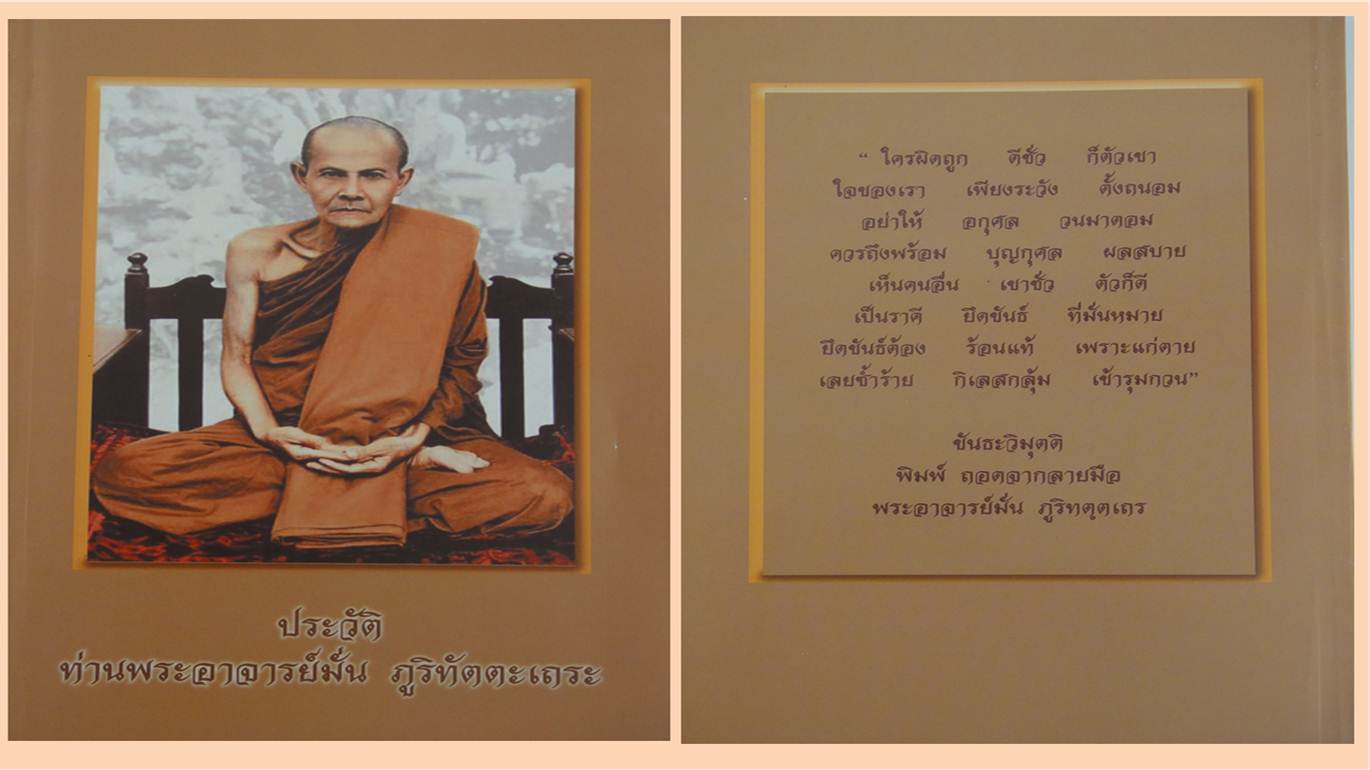 ประวัติ
ท่านพระอาจารย์มั่น ภูริทัตตะเถระ
“ ใครผิดถูก ดีชั่ว ก็ตัวเขา
ใจของเรา เพียงระวัง ตั้งถนอม
อย่าให้ อกุศล วนมาตอม
ควรถึงพร้อม บุญกุศล ผลสบาย
เห็นคนอื่น เขาชั่ว ตัวก็ดี
เป็นราคี ยึดขันธ์ ที่มั่นหมาย
ยึดขันธ์ต้อง ร้อนแท้ เพราะแก่ตาย
เลยซ้ำร้าย กิเลสกลุ้ม เข้ารุมกวน”
ขันธะวิมุตติ
พิมพ์ ถอดจากลายมือ
พระอาจารย์มั่น ภูริทตฺตเถร